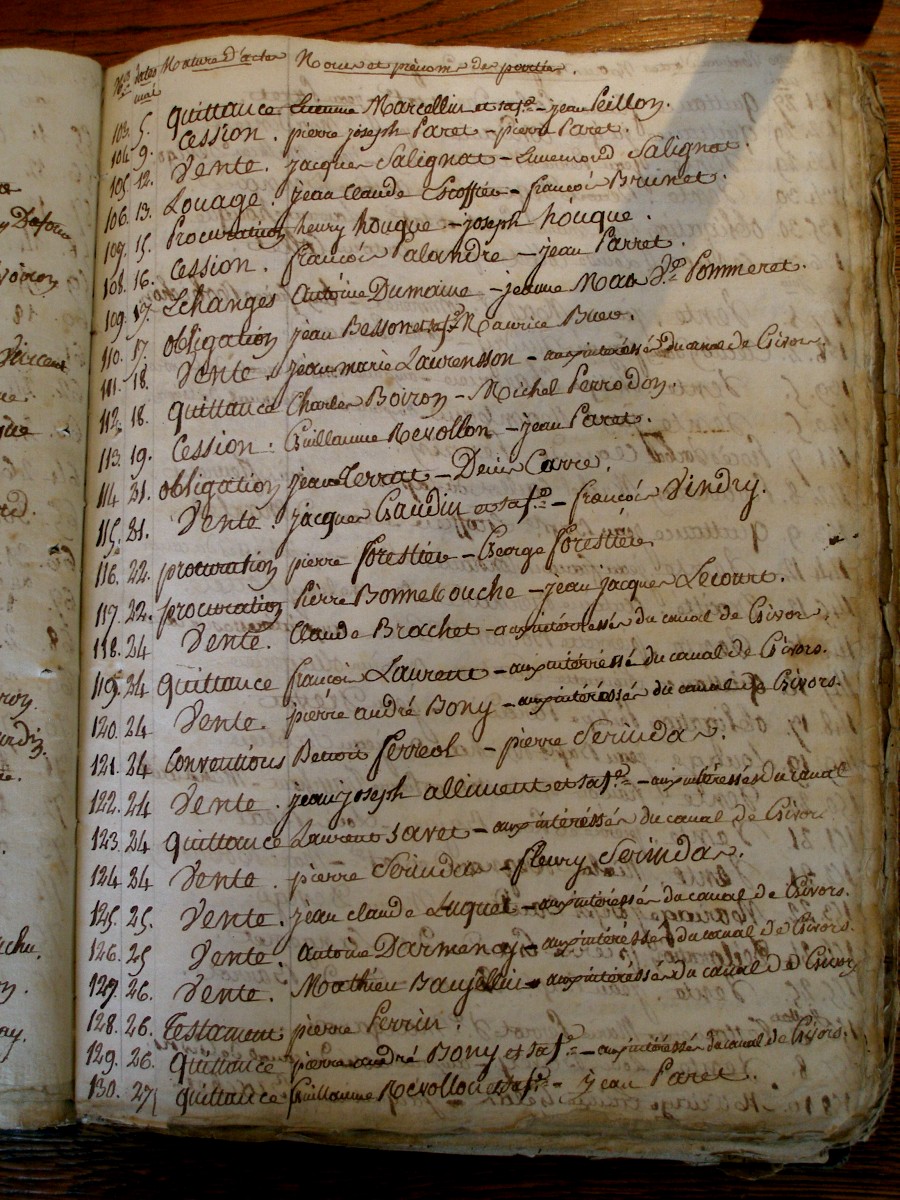 Nos dates Nature d'actes Noms et prénoms des parties.
mai
103. 5. quittance Etienne Marcellin et sa fe - jean Peillon.
104. 9. Cession. pierre joseph Paret - pierre Paret.
105. 12. Vente. jacques Salignat - Ennemond Salignat.
106. 13. Louage. jean Claude Escoffier - françois Brunet.
107. 15. Procuration henry houque - joseph houque.
108. 16. Cession. françois Palandre - jean Parret.
109. 17. Echanges Antoine Dumaine - jeanne Mas Ve Pommeret.
110. 17. obligation jean Besson et sa fe Maurice
111. 18. Vente. jean marie Laurensson - aux intéressés du canal de Givors.
112. 18. quittance Charles Boiron - Michel Perrodon.
113. 19. Cession. Guillaume Revollon - jean Paret.
114. 21. obligation jean Terrat - Denis Carre.
115. 21. Vente. jacques Gaudin et sa fe - françois Vindry.
116. 22. procuration pierre forestier - George forestier.
117. 22. procuration Pierre Bonnebouche - jean jacques Lecourt.
118. 24 Vente. Claude Brachet - aux intéressés du canal de Givors.
119. 24 quittance françois Laurent - aux intéressés du canal de Givors.
120. 24 Vente. pierre andré Bony - aux intéressés du canal de Givors.
121. 24 Conventions Benoit ferreol - pierre Serindas.
122. 24 Vente. jean joseph alliment et sa fe - aux intéressés du canal
123. 24 quittance Laurent Savet - aux intéressés du canal de Givors
124 24 Vente. pierre Serindas - fleury Serindas.
125. 25 Vente. jean claude Luquet - aux intéressés du canal de Givors.
126. 25 Vente. Antoine Darmancy - aux intéressés du canal de Givors.
127. 26. Vente. Mathieu - aux intéressés du canal de Givors
128. 26. Testament pierre Perrin.
129. 26. quittance pierre andré Bony et sa fe - aux intéressés du canal de Givors.
130. 27 quittance Guillaume Revollon et sa fe - jean Paret.